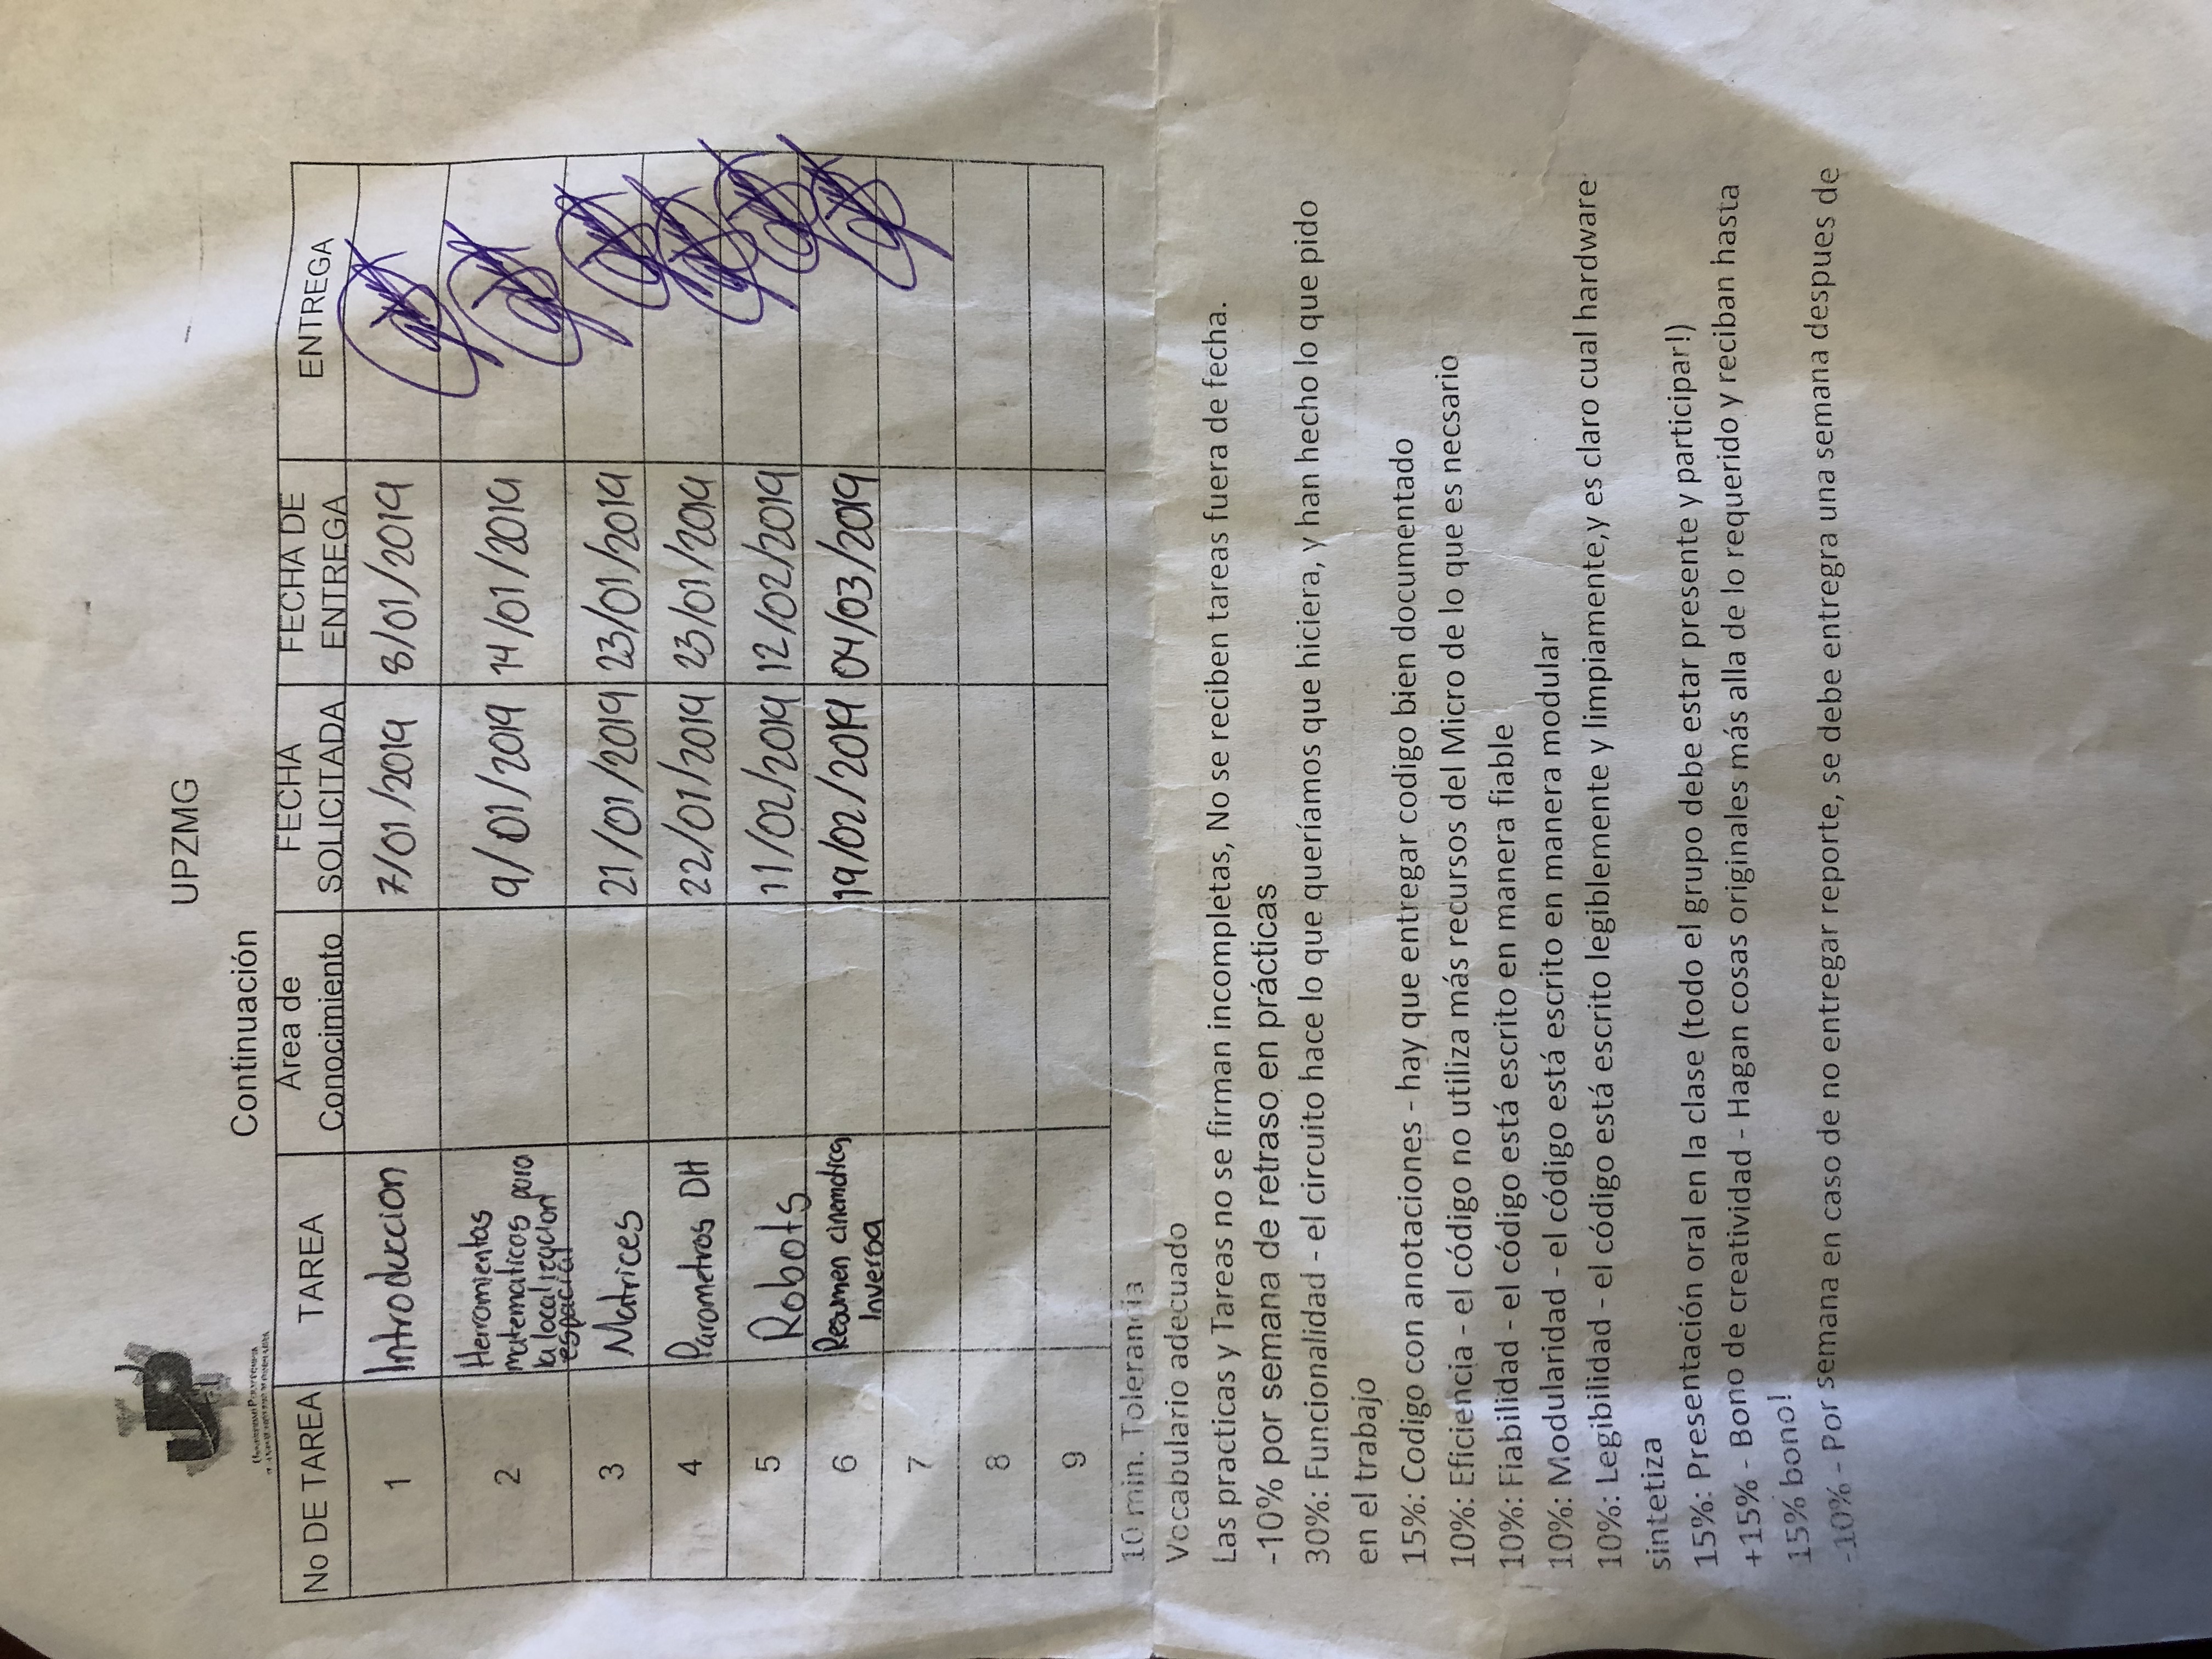 UPZMG
Continuación
No DE TAREA TAREA Area de Conocimiento FECHA SOLICITADA FECHA DE ENTREGA ENTREGA
1 Introduccion 7/01/2019 8/01/2019
2 Herramientas matematicas para la localizacion espacial 9/01/2019 14/01/2019
3 Matrices 21/01/2019 23/01/2019
4 Parametros DH 22/01/2019 23/01/2019
5 Robots 11/02/2019 12/02/2019
6 Resumen cinematica Inversa 19/02/2019 04/03/2019
7
8
9
10 min. Tolerancia
Vocabulario adecuado
Las practicas y Tareas no se firman incompletas, No se reciben tareas fuera de fecha.
-10% por semana de retraso en prácticas
30%: Funcionalidad - el circuito hace lo que queríamos que hiciera, y han hecho lo que pido
en el trabajo
15%: Codigo con anotaciones - hay que entregar codigo bien documentado
10%: Eficiencia - el código no utiliza más recursos del Micro de lo que es necsario
10%: Fiabilidad - el código está escrito en manera fiable
10%: Modularidad - el código está escrito en manera modular
10%: Legibilidad - el código está escrito legiblemente y limpiamente,y es claro cual hardware
sintetiza
15%: Presentación oral en la clase (todo el grupo debe estar presente y participar!)
+15% - Bono de creatividad - Hagan cosas originales más alla de lo requerido y reciban hasta
15% bono!
-10% - Por semana en caso de no entregar reporte, se debe entregra una semana despues de